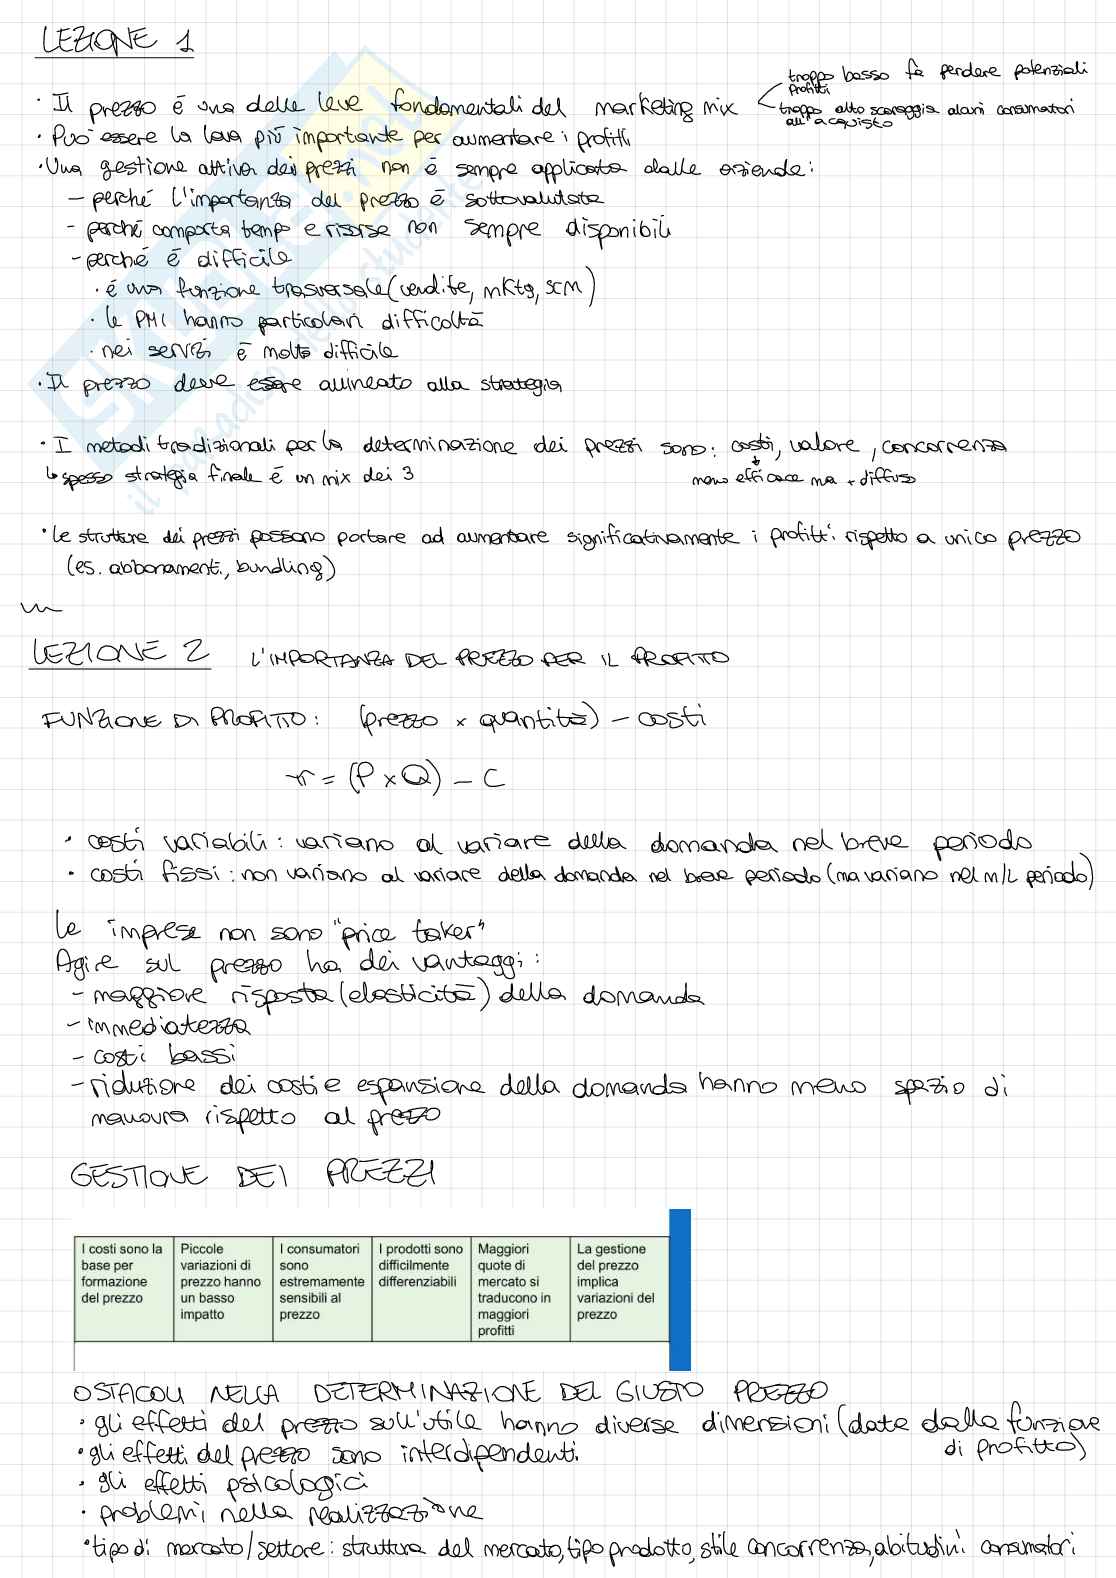 LEZIONE 1
· Il prezzo è una delle leve fondamentali del marketing mix
troppo basso fa perdere potenziali
profitti
troppo alto scoraggia alcuni consumatori
all'acquisto
· Può essere la leva più importante per aumentare i profitti
· Una gestione attiva dei prezzi non è sempre applicata dalle aziende:
- perché l'importanza del prezzo è sottovalutata
- perché comporta tempo e risorse non sempre disponibili
- perché è difficile
· è una funzione trasversale (vendite, mktg, SCM)
· le PMI hanno particolari difficoltà
· nei servizi è molto difficile
· Il prezzo deve essere allineato alla strategia
· I metodi tradizionali per la determinazione dei prezzi sono: costi, valore, concorrenza
↳ spesso strategia finale è un mix dei 3
meno efficace ma + diffuso
· Le strutture dei prezzi possono portare ad aumentare significativamente i profitti rispetto a unico prezzo
(es. abbonamenti, bundling)
LEZIONE 2 L'IMPORTANZA DEL PREZZO PER IL PROFITTO
FUNZIONE DI PROFITTO: (prezzo x quantità) - costi
π = (P x Q) - C
· costi variabili: variano al variare della domanda nel breve periodo
· costi fissi: non variano al variare della domanda nel breve periodo (ma variano nel m/L periodo)
Le imprese non sono "price taker"
Agire sul prezzo ha dei vantaggi:
- maggiore risposta (elasticità) della domanda
- immediatezza
- costi bassi
- riduzione dei costi e espansione della domanda hanno meno spazio di
manovra rispetto al prezzo
GESTIONE DEI PREZZI
I costi sono la
base per
formazione
del prezzo
Piccole
variazioni di
prezzo hanno
un basso
impatto
I consumatori
sono
estremamente
sensibili al
prezzo
I prodotti sono
difficilmente
differenziabili
Maggiori
quote di
mercato si
traducono in
maggiori
profitti
La gestione
del prezzo
implica
variazioni del
prezzo
OSTACOLI NELLA DETERMINAZIONE DEL GIUSTO PREZZO
· gli effetti del prezzo sull'utile hanno diverse dimensioni (date dalla funzione
di profitto)
· gli effetti del prezzo sono interdipendenti
· gli effetti psicologici
· problemi nella realizzazione
· tipo di mercato/settore: struttura del mercato, tipo prodotto, stile concorrenza, abitudini consumatori